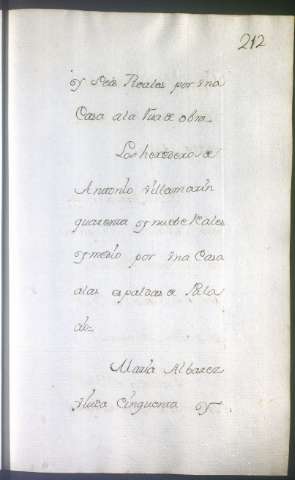 212
y Seis Reales por vna
Casa a la Rua de obra=
Los herederos de
Antonio Villamarin
quarenta y nuebe Reales
y medio por vna Casa
a las espaldas de Pala
cio=
Maria Albarez
viuda Cinquenta y